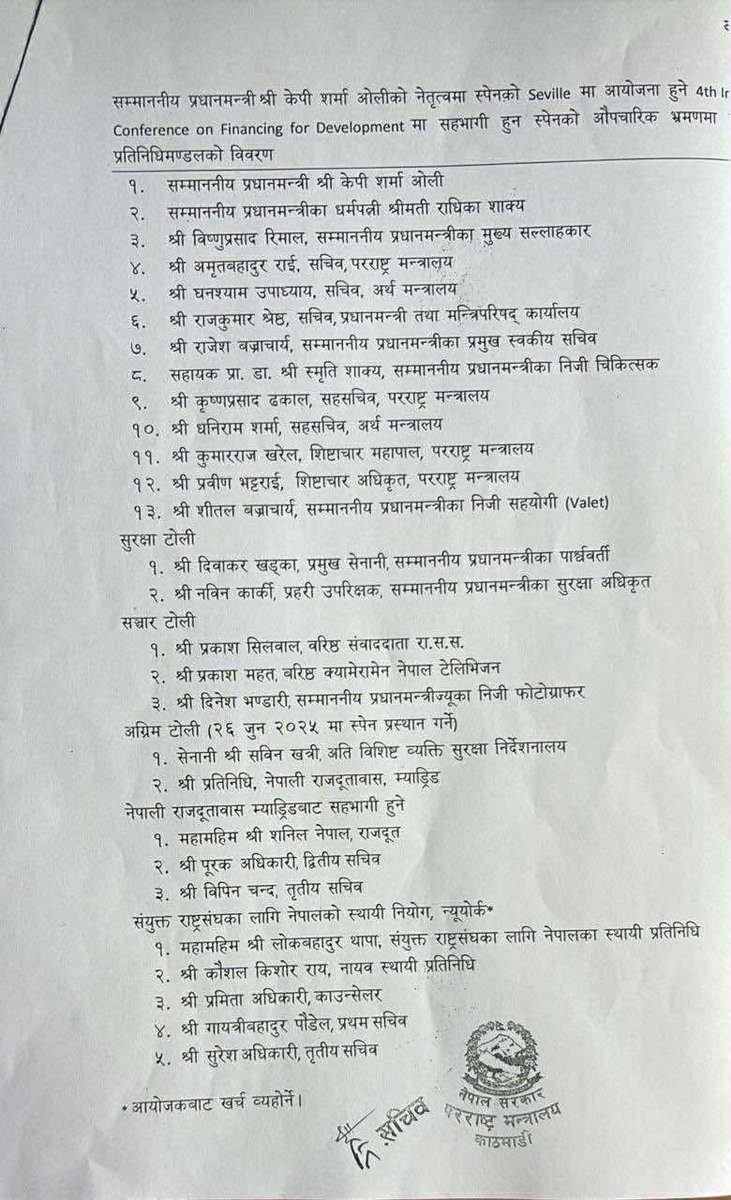 सम्माननीय प्रधानमन्त्री श्री केपी शर्मा ओलीको नेतृत्वमा स्पेनको Seville मा आयोजना हुने 4th
Conference on Financing for Development मा सहभागी हुन स्पेनको औपचारिक भ्रमणमा
प्रतिनिधिमण्डलको विवरण
१. सम्माननीय प्रधानमन्त्री श्री केपी शर्मा ओली
२. सम्माननीय प्रधानमन्त्रीका धर्मपत्नी श्रीमती राधिका शाक्य
३. श्री विष्णुप्रसाद रिमाल, सम्माननीय प्रधानमन्त्रीका मुख्य सल्लाहकार
४. श्री अमृतबहादुर राई, सचिव, परराष्ट्र मन्त्रालय
५. श्री घनश्याम उपाध्याय, सचिव, अर्थ मन्त्रालय
६. श्री राजकुमार श्रेष्ठ, सचिव, प्रधानमन्त्री तथा मन्त्रिपरिषद् कार्यालय
७. श्री राजेश बज्राचार्य, सम्माननीय प्रधानमन्त्रीका प्रमुख स्वकीय सचिव
८. सहायक प्रा. डा. श्री स्मृति शाक्य, सम्माननीय प्रधानमन्त्रीका निजी चिकित्सक
९. श्री कृष्णप्रसाद ढकाल, सहसचिव, परराष्ट्र मन्त्रालय
१०. श्री धनिराम शर्मा, सहसचिव, अर्थ मन्त्रालय
११. श्री कुमारराज खरेल, शिष्टाचार महापाल, परराष्ट्र मन्त्रालय
१२. श्री प्रवीण भट्टराई, शिष्टाचार अधिकृत, परराष्ट्र मन्त्रालय
१३. श्री शीतल बज्राचार्य, सम्माननीय प्रधानमन्त्रीका निजी सहयोगी (Valet)
सुरक्षा टोली
१. श्री दिवाकर खड्का, प्रमुख सेनानी, सम्माननीय प्रधानमन्त्रीका पार्श्ववर्ती
२. श्री नविन कार्की, प्रहरी उपरिक्षक, सम्माननीय प्रधानमन्त्रीका सुरक्षा अधिकृत
सञ्चार टोली
१. श्री प्रकाश सिलवाल, वरिष्ठ संवाददाता रा.स.स.
२. श्री प्रकाश महत, बरिष्ठ क्यामेरामेन नेपाल टेलिभिजन
३. श्री दिनेश भण्डारी, सम्माननीय प्रधानमन्त्रीज्यूका निजी फोटोग्राफर
अग्रिम टोली (२६ जुन २०२५ मा स्पेन प्रस्थान गर्ने)
१. सेनानी श्री सविन खत्री, अति विशिष्ट व्यक्ति सुरक्षा निर्देशनालय
२. श्री प्रतिनिधि, नेपाली राजदूतावास, म्याड्रिड
नेपाली राजदूतावास म्याड्रिडबाट सहभागी हुने
१. महामहिम श्री शनिल नेपाल, राजदूत
२. श्री पूरक अधिकारी, द्वितीय सचिव
३. श्री विपिन चन्द, तृतीय सचिव
संयुक्त राष्ट्रसंघका लागि नेपालको स्थायी नियोग, न्यूयोर्क*
१. महामहिम श्री लोकबहादुर थापा, संयुक्त राष्ट्रसंघका लागि नेपालका स्थायी प्रतिनिधि
२. श्री कौशल किशोर राय, नायव स्थायी प्रतिनिधि
३. श्री प्रमिता अधिकारी, काउन्सेलर
४. श्री गायत्रीबहादुर पौडेल, प्रथम सचिव
५. श्री सुरेश अधिकारी, तृतीय सचिव
*आयोजकबाट खर्च व्यहोर्ने।
सचिव
नेपाल सरकार
परराष्ट्र मन्त्रालय
काठमाडौं